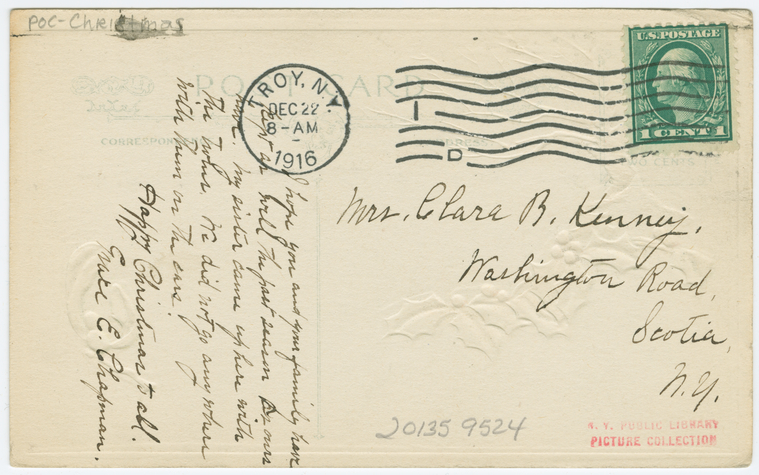 POC-Christmas
POST CARD
CORRESPONDENCE
ADDRESS
TROY, N.Y.
DEC 22
8-AM
1916
I
D
U.S. POSTAGE
1 CENT 1
I hope you and your family have
kept as well the past season as ours
have. My sister came up here with
the twins. We did not go anywhere
with them on the cars.
Happy Christmas to all.
E. Chapman.
Mrs. Clara B. Kenney,
Washington Road,
Scotia,
N.Y.
20135 9524
N. Y. PUBLIC LIBRARY
PICTURE COLLECTION